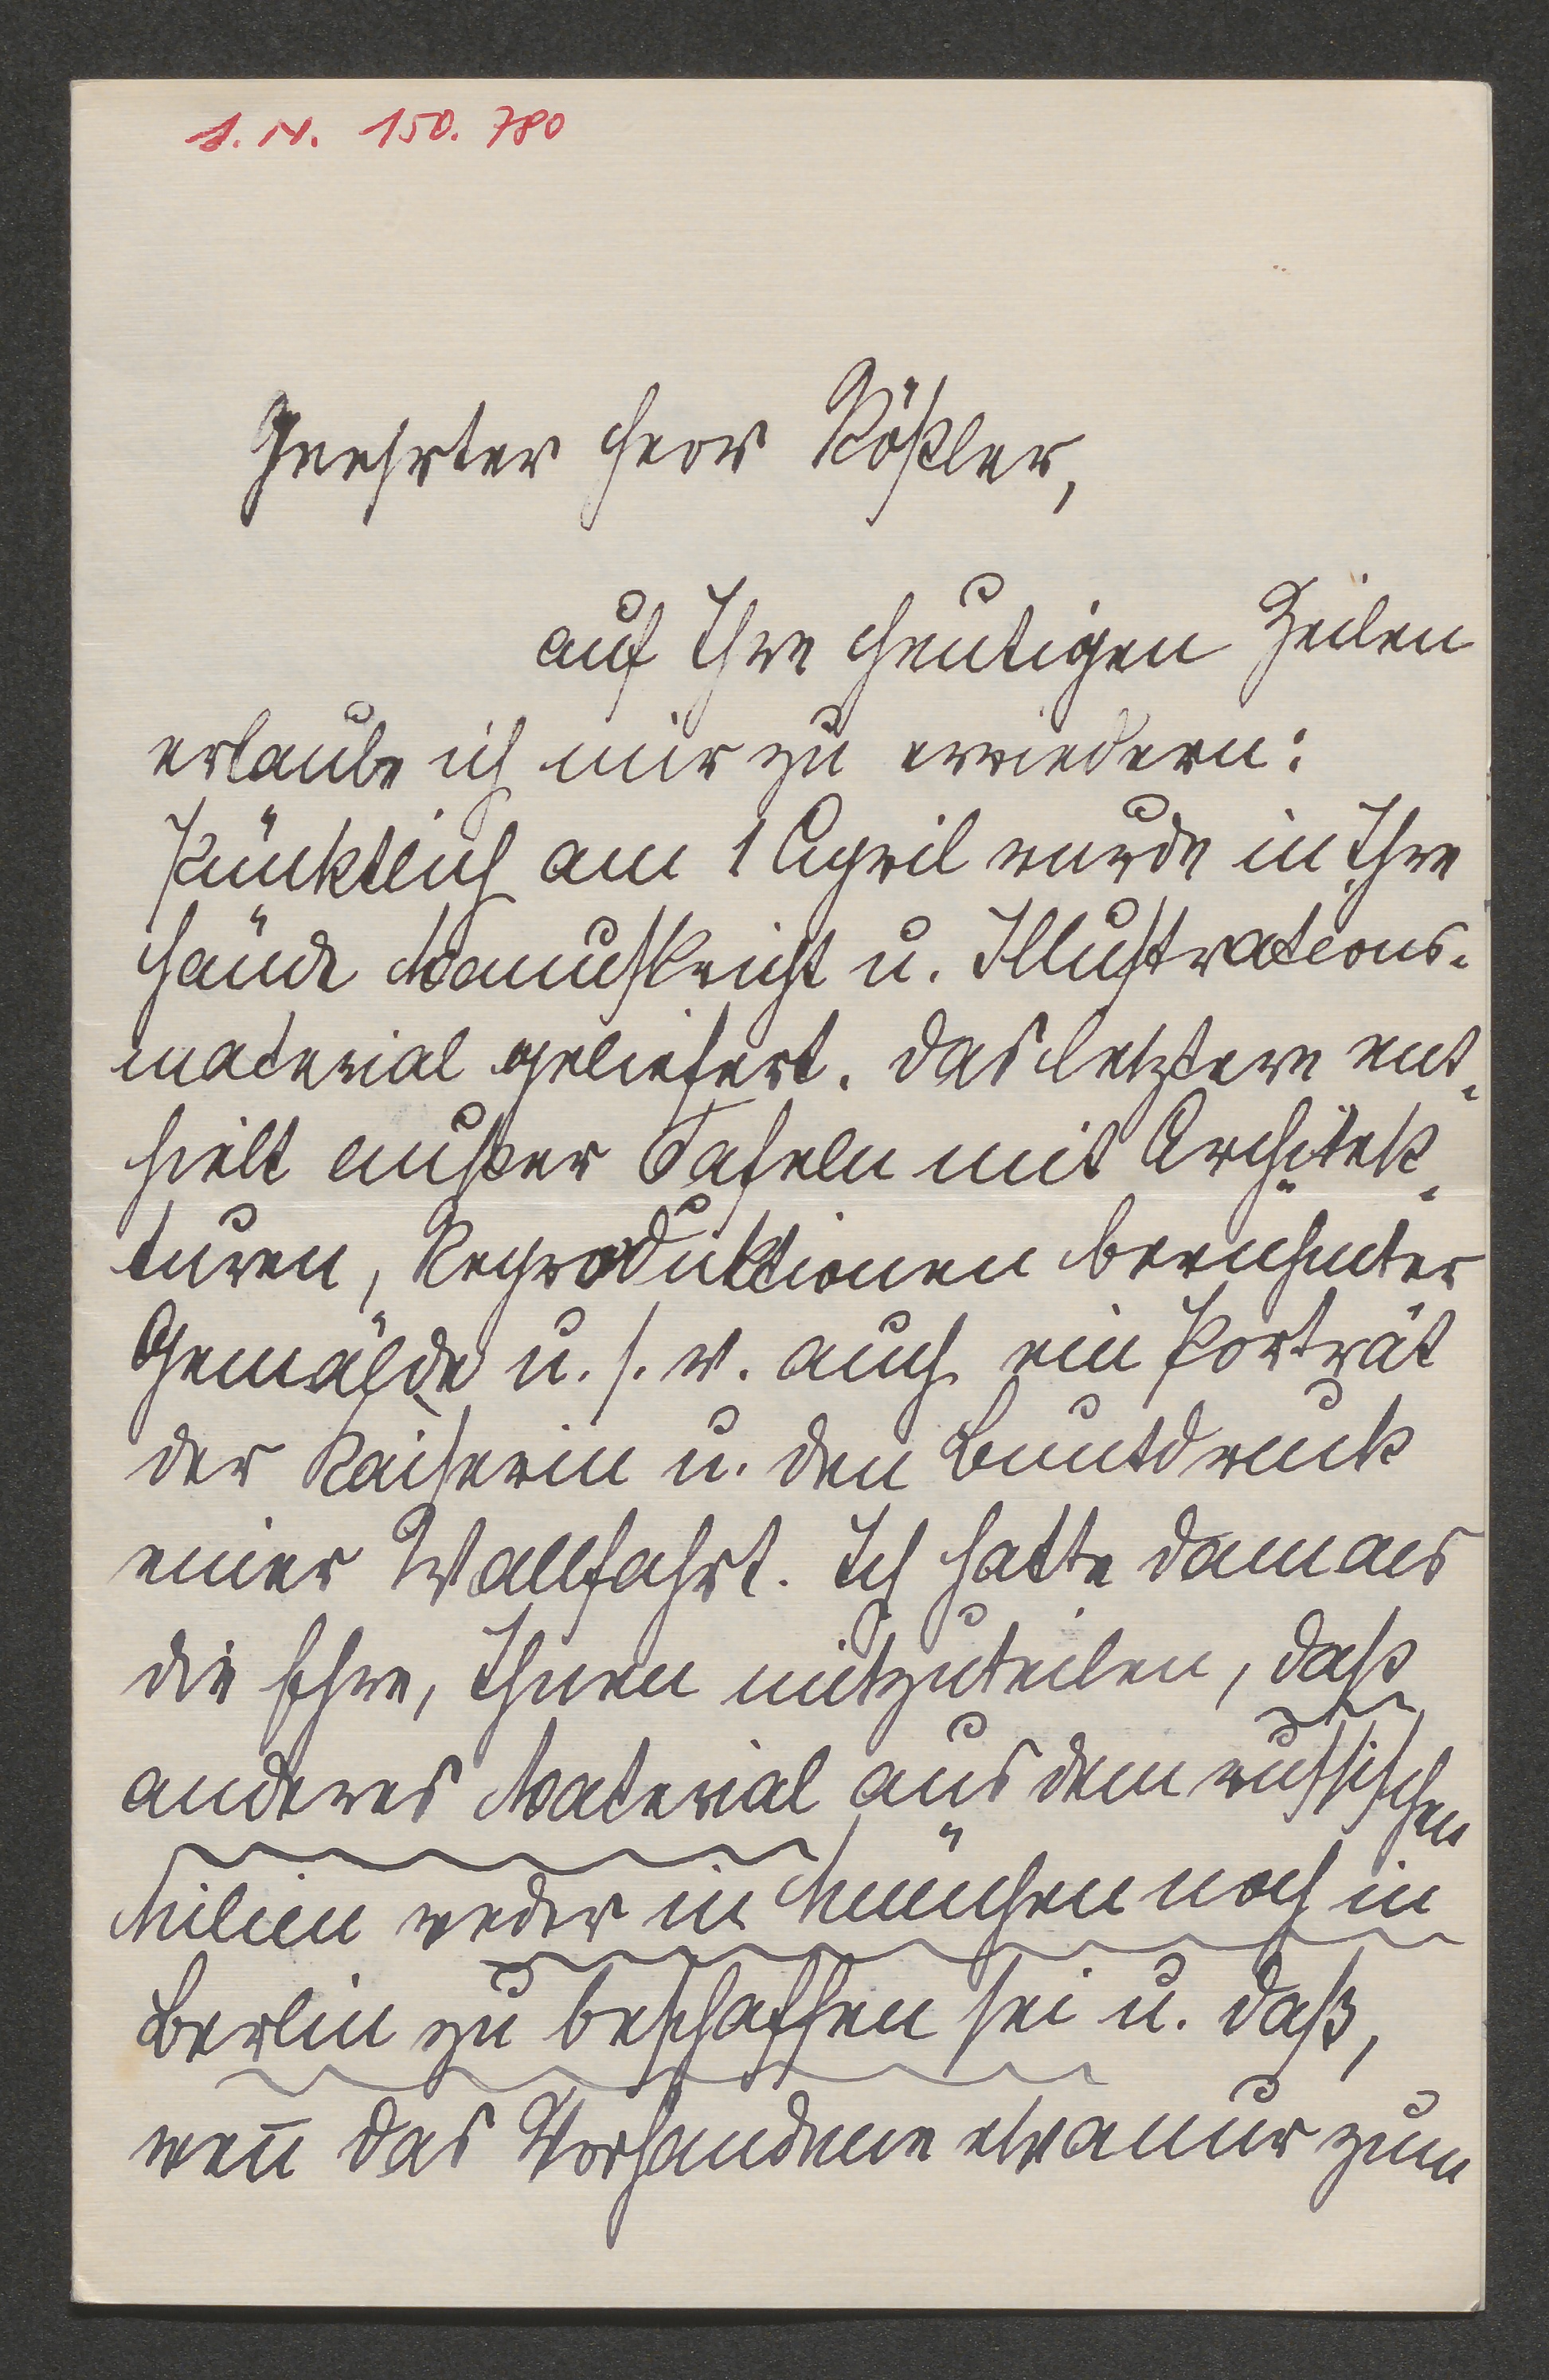 I.N. 150.780
Geehrter Herr Rößler,
auf Ihre heutigen Zeilen
erlaube ich mir zu erwiedern:
Pünktlich am 1 April wurde in Ihre
Hände Manuskript u. Illustrations-
material geliefert. Das letztere ent-
hielt außer Tafeln mit Architek-
turen, Reproduktionen beruehmter
Gemälde u. s. w. auch ein Porträt
der Kaiserin u. den Buntdruck
einer Wallfahrt. Ich hatte damals
die Ehre, Ihnen mitzuteilen, daß
anderes Material aus dem russischen
Milieu weder in München noch in
Berlin zu beschaffen sei u. daß,
weñ das Vorhandene etwa nur zum